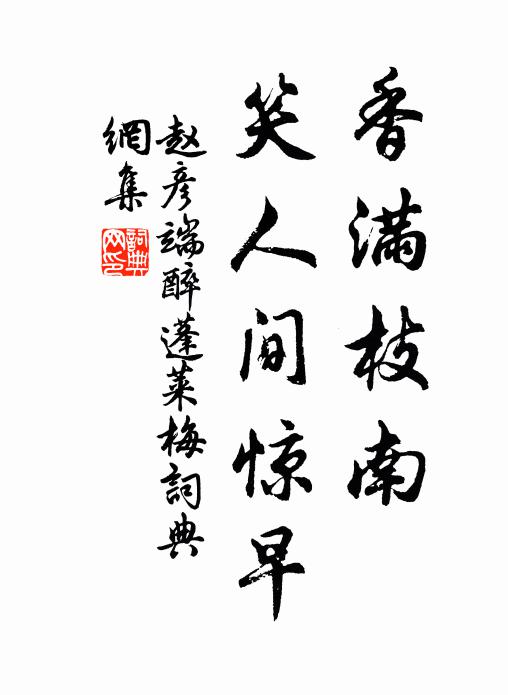 香满枝南
笑人间惊早
赵彦端醉蓬莱梅詞典
網集
詞典
网印